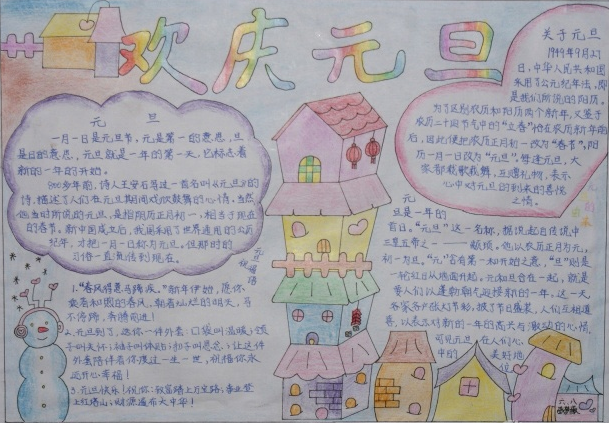 欢庆元旦
元 旦
一月一日是元旦节,元是第一的意思,旦
是日的意思,元旦就是一年的第一天,它标志着
新一年的开始。
800多年前,诗人王安石写过一首名叫《元旦》的
诗,描述了人们在元旦期间欢欣鼓舞的心情,当然
他当时所说的元旦,是指阴历正月初一,相当于现在
的春节。新中国成立后,我国采用了世界通用的公历
纪年,才把一月一日称为元旦。但那时的
习俗一直流传到现在。
元旦
祝福语
1."春风得意马蹄疾。"新年伊始,愿你
乘着和煦的春风,朝着灿烂的明天,马
不停蹄,奔腾前进!
2.元旦到了,送你一件外套:口袋叫温暖;领
子叫关怀;袖子叫体贴;扣子叫思念;让这件
外套陪伴着你度过一生一世,祝福你永
远开心幸福!
3.元旦快乐!祝你:致富踏上万宝路;事业登
上红塔山;财源遍布大中华!
关于元旦
1949年9月27
日,中华人民共和国
采用了公元纪年法,即
是我们所说的阳历,
为了区别农历和阳历两个新年,又鉴于
农历二十四节气中的"立春"恰在农历新年前
后,因此便把农历正月初一改为"春节",阳
历一月一日改为"元旦"。每逢元旦,大
家都载歌载舞,互赠礼物,表示
心中对元旦的到来的喜悦
之情。
元
旦是一年的
首日。"元旦"这一名称,据说起自传说中
三皇五帝之一——颛顼。他以农历正月为元,
初一为旦。"元"当有第一和开始之意,"旦"则是
一轮红日从地面升起。元和旦合在一起,就是
要人们以蓬勃朝气迎接新的一年。这一天
各家各户张灯节彩,披了节日盛装,人们互相道
喜,以表示对新的一年的高兴与激动的心情。
可见元旦在人们心
中的 美好地
位。
六、八